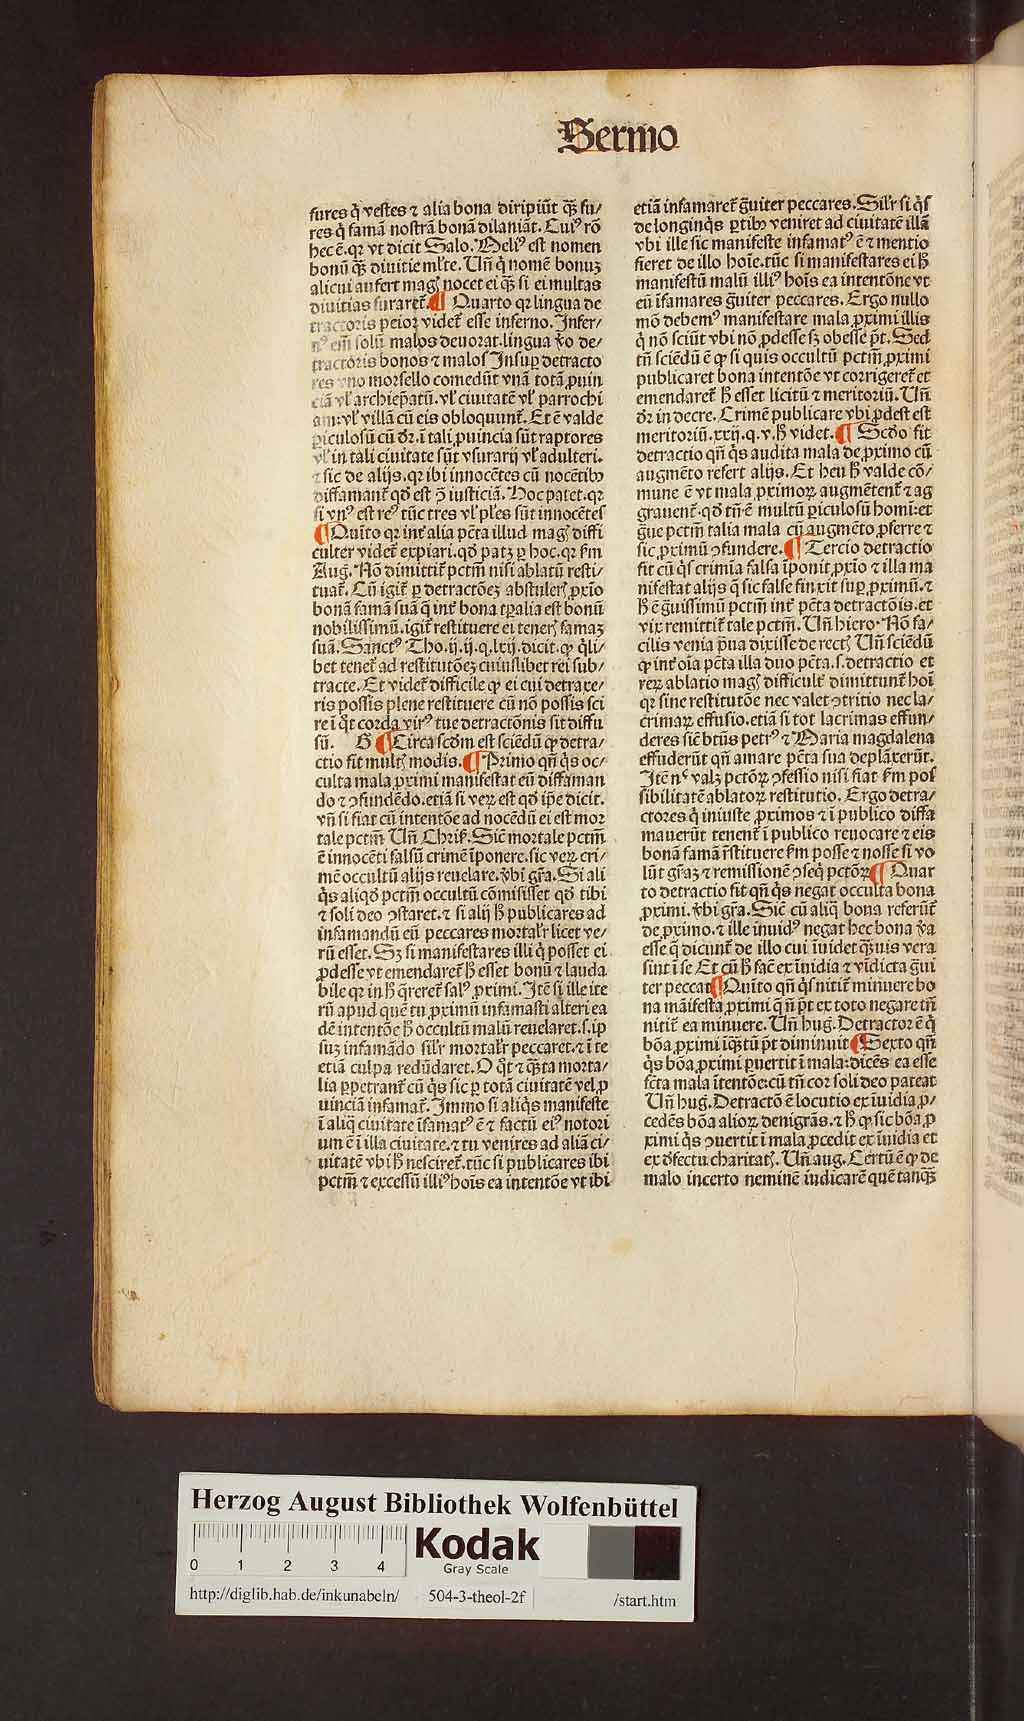 Sermo
fures q̇ vestes ⁊ alia bona diripiūt q̄ꝫ fu/
res q̇ famā nostrā bonā dilaniāt. Cui⁹ rō
hec ē. qꝛ vt dicit Salo. Meli⁹ est nomen
bonū q̄ꝫ diuitie ml̓te. Vn̄ q̇ nomē bonuꝫ
alicui aufert magꝭ nocet ei q̄ꝫ si ei multas
diuitias furaret᷑. ¶ Quarto qꝛ lingua de
tractoris peior videt᷑ esse inferno. Infer/
n⁹ em̄ solū malos deuorat. lingua v̄o de/
tractoris bonos ⁊ malos Insuꝑ detracto
res vno morsello comedūt vnā totā ꝓuin
ciā vl̓ archiep̄atū. vl̓ ciuitatē vl̓ parrochi
am: vl̓ villā cū eis obloquunt᷑. Et ē valde
ꝑiculosū cū dꝛ. ī tali ꝓuincia sūt raptores
vl̓ in tali ciuitate sūt vsurarij vl̓ adulteri.
⁊ sic de alijs. qꝛ ibi innocētes cū nocētibꝰ
diffamant᷑ qd̓ est ꝯ̄ iusticiā. Hoc patet. qꝛ
si vn⁹ est re⁹ tūc tres vl̓ pl̓es sūt innocētes
¶ Quīto qꝛ int̓ alia pctā illud magꝭ diffi
culter videt᷑ expiari. qd̓ patꝫ ꝑ hoc. qꝛ fm̄
Aug̓. Nō dimittit᷑ pctm̄ nisi ablatū resti/
tuat᷑. Cū igit᷑ ꝑ detractōeꝫ abstulerꝭ ꝓxīo
bonā famā suā q̄ int̓ bona tꝑalia est bonū
nobilissimū. igit᷑ restituere ei tenerꝭ famaꝫ
suā. Sanct⁹ Tho. ij. ij. q. lxij. dicit. ꝙ q̄li/
bet tenet᷑ ad restitutōeꝫ cuiuslibet rei sub/
tracte. Et videt᷑ difficile ꝙ ei cui detraxe/
ris possis plene restituere cū nō possis sci
re ī q̄t corda vir⁹ tue detractōnis sit diffu
sū. B ¶ Circa scd̓m est sciēdū ꝙ detra/
ctio fit multꝭ modis. ¶ Primo qn̄ q̇s oc/
culta mala ꝓximi manifestat eū diffaman
do ⁊ ꝯfundēdo. etiā si verꝫ est qd̓ ip̄e dicit.
vn̄ si fiat cū intentōe ad nocēdū ei est mor
tale pctm̄ Vn̄ Chris̓. Sic̄ mortale pctm̄
ē innocēti falsū crimē īponere. sic verꝫ cri/
mē occultū alijs reuelare. v̓bi gr̄a. Si ali
q̇s aliqd̓ pctm̄ occultū cōmisisset qd̓ tibi
⁊ soli deo ꝯstaret. ⁊ si alij h̓ publicares ad
infamandū eū peccares mortal̓r licet ve/
rū esset. Sꝫ si manifestares illi q̇ posset ei
ꝓdesse vt emendaret᷑ h̓ esset bonū ⁊ lauda
bile qꝛ in h̓ q̄reret᷑ sal⁹ ꝓximi. Itē si ille ite
rū apud quē tu ꝓximū infamasti alteri ea
dē intentōe h̓ occultū malū reuelaret. s. ip
suꝫ infamādo sil̓r mortal̓r peccaret. ⁊ ī te
etiā culpa redūdaret. O q̄t ⁊ q̄ꝫta morta/
lia ꝑpetrant᷑ cū q̇s sic ꝑ totā ciuitatē vel ꝓ
uinciā infamat᷑. Immo si aliq̇s manifeste
ī aliq̄ ciuitate īfamat⁹ ē ⁊ factū ei⁹ notori
um ē ī illa ciuitate. ⁊ tu venires ad aliā ci/
uitatē vbi h̓ nesciret᷑. tūc si publicares ibi
pctm̄ ⁊ excessū illi⁹ hoīs ea intentōe vt ibi
etiā infamaret᷑ g̓uiter peccares. Sil̓r si q̇s
de longinq̇s ꝑtibꝰ veniret ad ciuitatē illā
vbi ille sic manifeste infamat⁹ ē ⁊ mentio
fieret de illo hoīe. tūc si manifestares ei h̓
manifestū malū illi⁹ hoīs ea intentōne vt
eū īfamares g̓uiter peccares. Ergo nullo
mō debem⁹ manifestare mala ꝓximi illis
q̇ nō sciūt vbi nō ꝓdesse sꝫ obesse pt̄. Sed
tn̄ sciēdū ē ꝙ si quis occultū pctm̄ ꝓximi
publicaret bona intentōe vt corrigeret᷑ et
emendaret᷑ h̓ esset licitū ⁊ meritoriū. Vn̄
dꝛ in decre. Crimē publicare vbi ꝓdest est
meritoriū. xxij. q. v. h̓ videt. ¶ Scd̓o fit
detractio qn̄ q̇s audita mala de ꝓximo cū
augmēto refert alijs. Et heu h̓ valde cō/
mune ē vt mala ꝓximoꝝ augmētent᷑ ⁊ ag
grauent᷑. qd̓ tn̄ ē multū ꝑiculosū homī: et
g̓ue pctm̄ talia mala cū augmēto ꝓferre ⁊
sic ꝓximū ꝯfundere. ¶ Tercio detractio
fit cū q̇s crimīa falsa īponit ꝓxīo ⁊ illa ma
nifestat alijs q̄ sic false finxit suꝑ ꝓximū. ⁊
h̓ ē g̓uissimū pctm̄ int̓ pctā detractōis. et
vix remittit᷑ tale pctm̄. Vn̄ hiero. Nō fa/
cilis venia ꝓ̄ua dixisse de rectꝭ Vn̄ sciēdū
ꝙ int̓ oīa pctā illa duo pctā. s. detractio et
reꝝ ablatio magꝭ difficult̓ dimittunt᷑ hoī
qꝛ sine restitutōe nec valet ꝯtritio nec la/
crimaꝝ effusio. etiā si tot lacrimas effun/
deres sic̄ btūs petr⁹ ⁊ Maria magdalena
effuderūt qn̄ amare pctā sua deplāxerūt.
Itē nō valꝫ pctōꝝ ꝯfessio nisi fiat fm̄ pos
sibilitatē ablatoꝝ restitutio. Ergo detra/
ctores q̇ iniuste ꝓximos ⁊ ī publico diffa
mauerūt tenent᷑ ī publico reuocare ⁊ eis
bonā famā r̄stituere fm̄ posse ⁊ nosse si vo
lūt gr̄aꝫ ⁊ remissionē ꝯseq̇ pctōꝝ ¶ Quar
to detractio fit qn̄ q̇s negat occulta bona
ꝓximi. v̓bi gr̄a. Sic̄ cū aliq̄ bona referūt᷑
de ꝓximo. ⁊ ille inuid⁹ negat hec bona v̓a
esse q̄ dicunt᷑ de illo cui īuidet q̄ꝫuis vera
sint ī se Et cū h̓ fac̄ ex īuidia ⁊ vīdicta g̓ui
ter peccat ¶ Quīto qn̄ q̇s nitit᷑ minuere bo
na māifesta ꝓximi q̄ n̄ pt̄ ex toto negare tn̄
nitit᷑ ea minuere. Vn̄ hug̓. Detractor ē q̇
bōa ꝓximi īq̄ꝫtū pt̄ diminuit ¶ Sexto qn̄
q̇s bōa ꝓximi ꝑuertit ī mala: dicēs ea esse
fctā mala ītentōe: cū tn̄ cor soli deo pateat
Vn̄ hug̓. Detractō ē locutio ex īuidia ꝓ/
cedēs bōa alioꝝ denigrās. ⁊ h̓ ꝙ sic bōa ꝓ
ximi q̇s ꝯuertit ī mala ꝓcedit ex īuidia et
ex d̓fectu charitatꝭ. Vn̄ aug. Certū ē ꝙ de
malo incerto neminē iudicarē quē tanq̄ꝫ
Herzog August Bibliothek Wolfenbüttel
0 1 2 3 4
Kodak
Gray Scale
http://diglib.hab.de/inkunabeln/ 504-3-theol-2f /start.htm